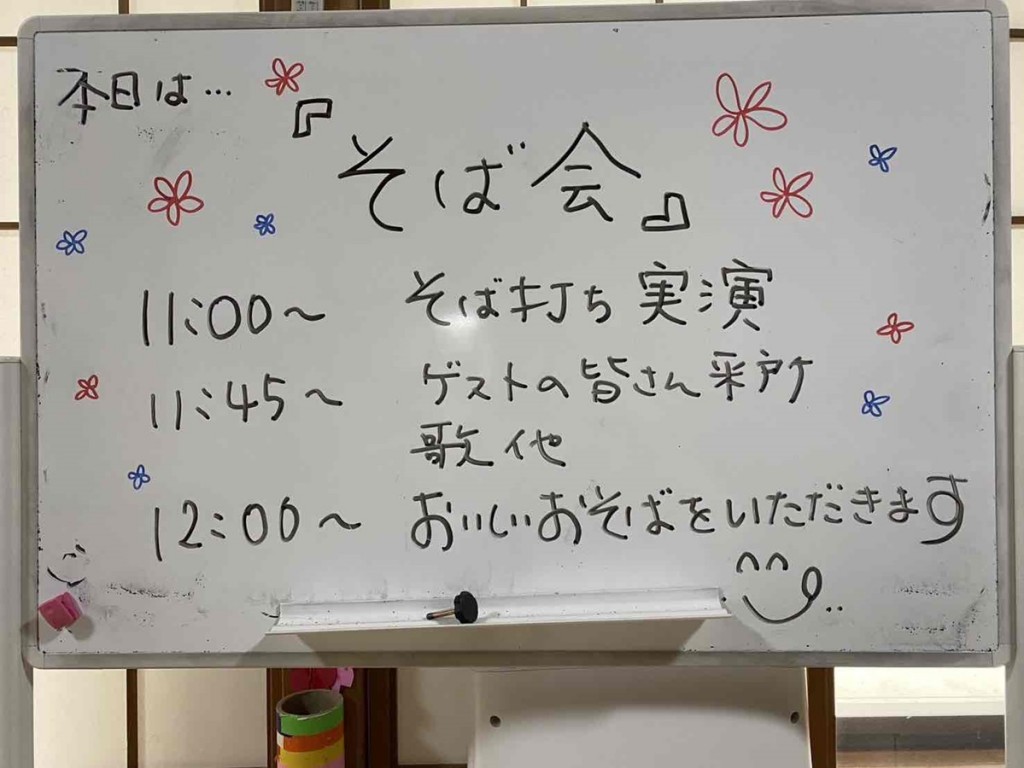 本日は…
『そば会』
11:00～ そば打ち 実演
11:45～ ゲストの皆さん 来所
歌 他
12:00～ おいしいおそばをいただきます